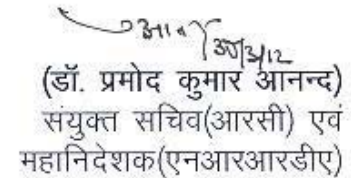 30/3/12
(डॉ. प्रमोद कुमार आनन्द)
संयुक्त सचिव(आरसी) एवं
महानिदेशक(एनआरआरडीए)